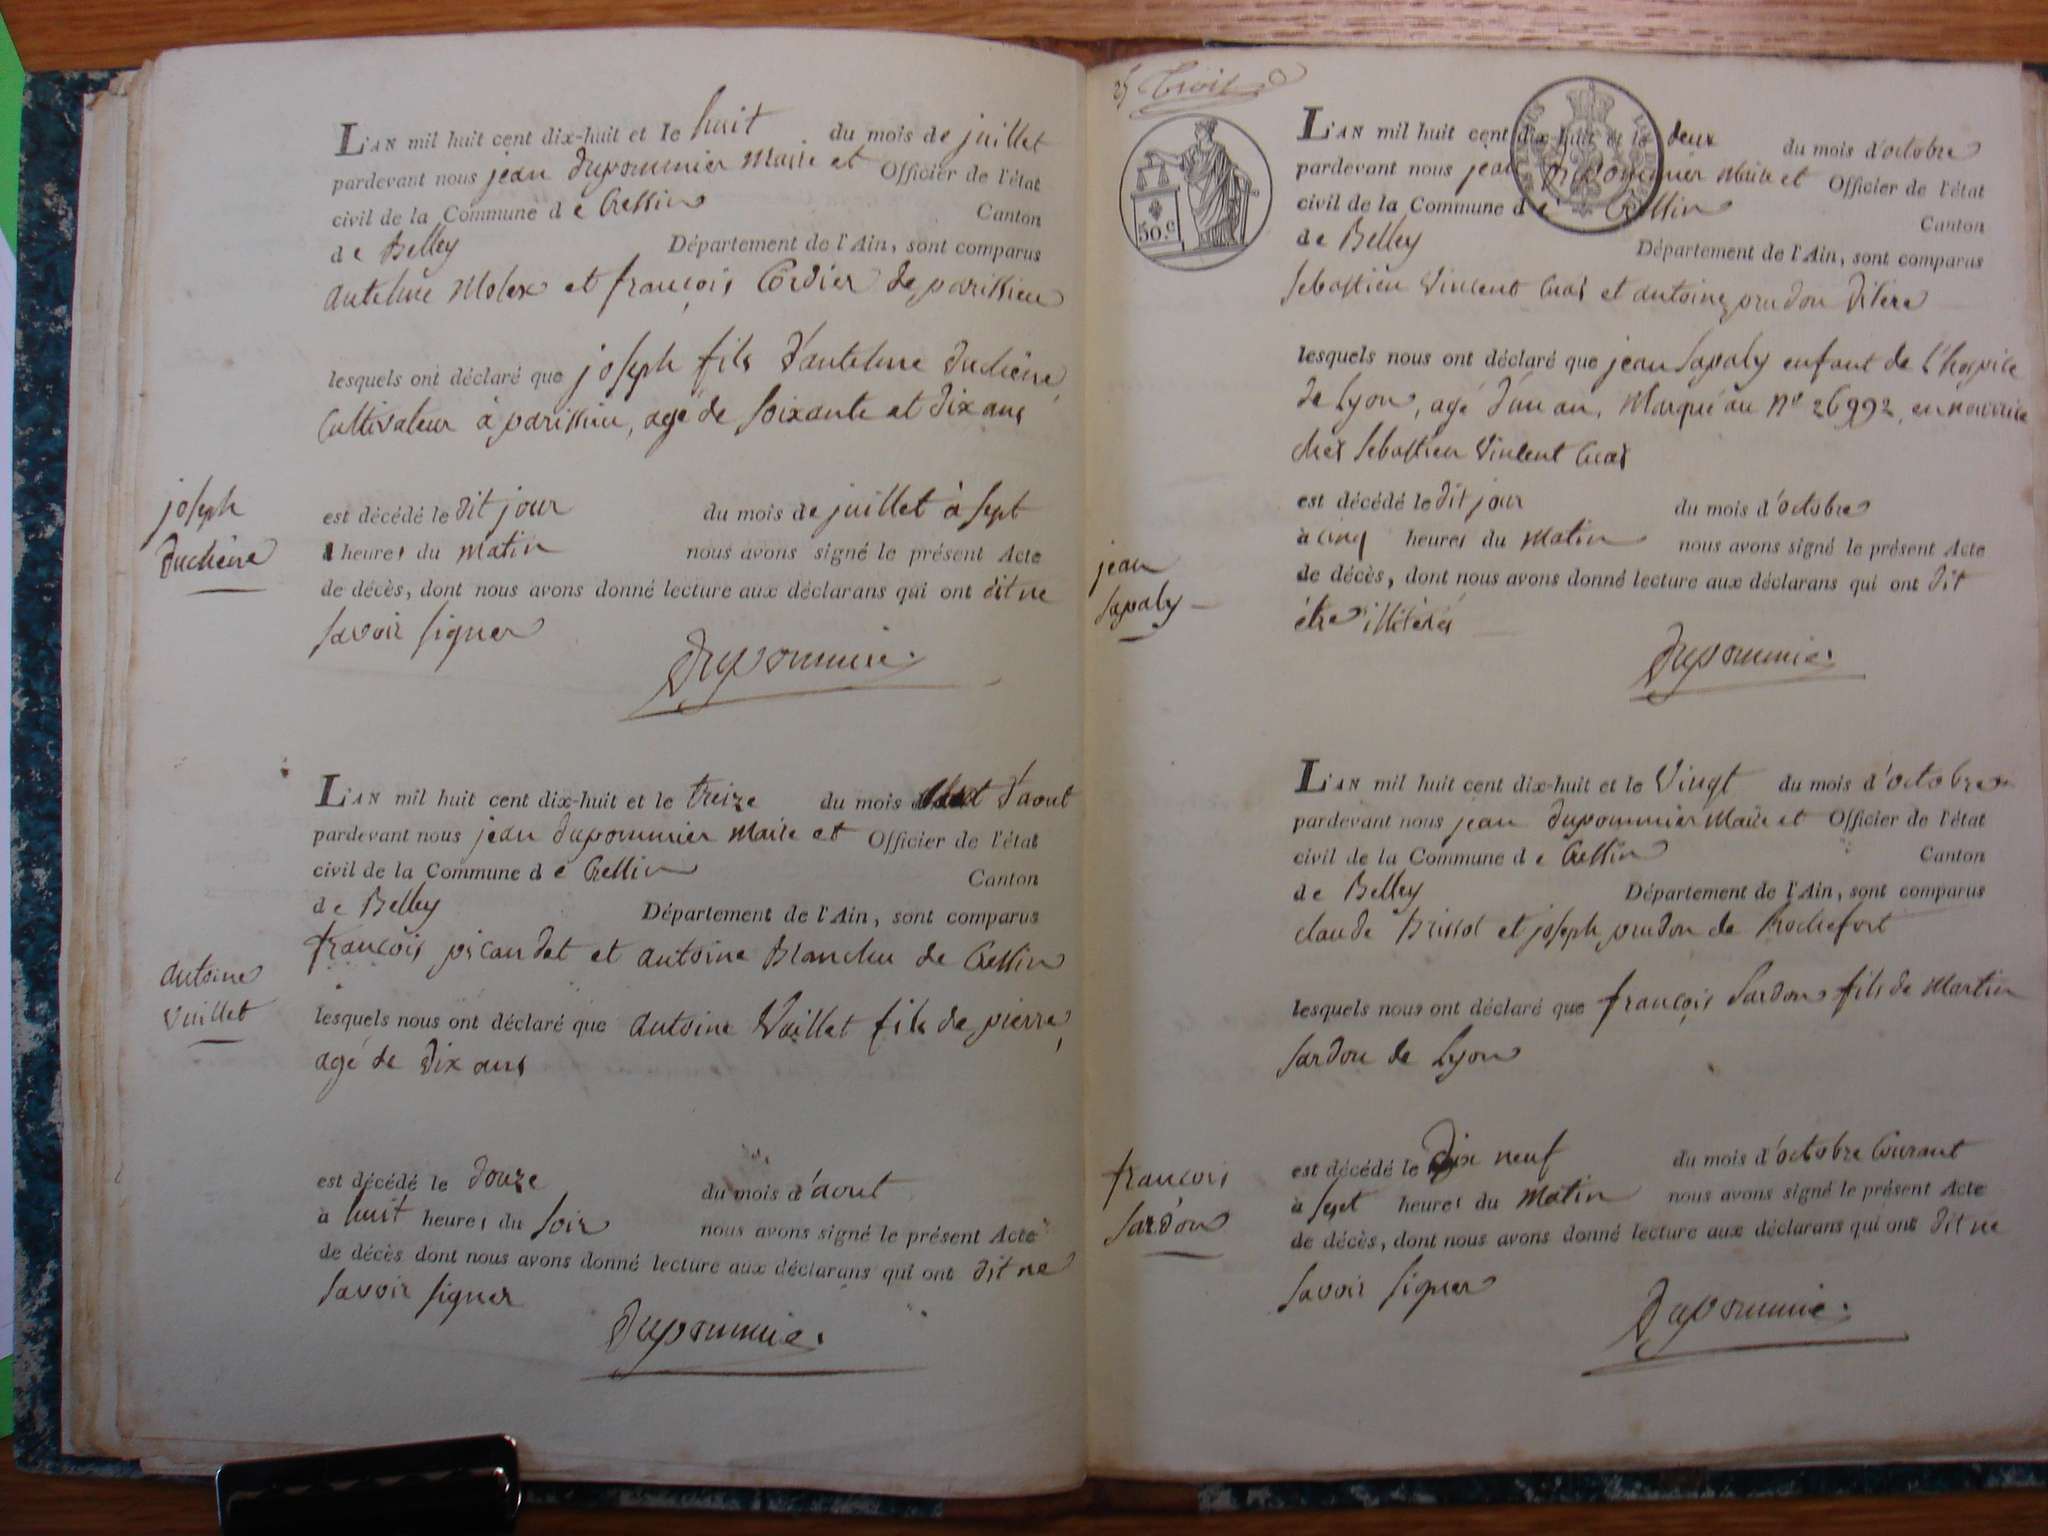 L'AN mil huit cent dix-huit et le huit du mois de juillet
pardevant nous jean Dupommier Maire et Officier de l'état
civil de la Commune de Cressin Canton
de Belley Département de l'Ain, sont comparus
antelme Molex et françois Cordier de parissieu
lesquels ont déclaré que joseph fils d'antelme Duchêne,
Cultivateur à parissieu, agé de soixante et dix ans
joseph
Duchêne
est décédé le dit jour du mois de juillet à sept
heures du matin nous avons signé le présent Acte
de décès, dont nous avons donné lecture aux déclarans qui ont dit ne
savoir signer
Dupommier
L'AN mil huit cent dix-huit et le treize du mois d'aout
pardevant nous jean dupommier Maire et Officier de l'état
civil de la Commune de Cressin Canton
de Belley Département de l'Ain, sont comparus
françois picaudet et antoine Blanchin de Cressin
antoine
Vuillet
lesquels nous ont déclaré que antoine Vuillet fils de pierre,
agé de dix ans
est décédé le douze du mois d'aout
à huit heures du soir nous avons signé le présent Acte
de décès dont nous avons donné lecture aux déclarans qui ont dit ne
savoir signer
Dupommier
25 Trois
50.c
L'AN mil huit cent dix-huit et le deux du mois d'octobre
pardevant nous jean Dupommier Maire et Officier de l'état
civil de la Commune de Cressin Canton
de Belley Département de l'Ain, sont comparus
Sebastien Vincent et antoine prudon
lesquels nous ont déclaré que jean Sapaly enfant de l'hospice
de Lyon, agé d'un an, Marqué au n° 26992, en nourrice
chez Sebastien Vincent
jean
Sapaly
est décédé le dit jour du mois d'octobre
à cinq heures du matin nous avons signé le présent Acte
de décès, dont nous avons donné lecture aux déclarans qui ont dit
être illitérés
Dupommier
L'AN mil huit cent dix-huit et le Vingt du mois d'octobre
pardevant nous jean dupommier Maire et Officier de l'état
civil de la Commune de Cressin Canton
de Belley Département de l'Ain, sont comparus
claude Brissot et joseph prudon de Rochefort
lesquels nous ont déclaré que françois Sardon fils de Martin
Sardon de Lyon
françois
Sardon
est décédé le dix neuf du mois d'octobre Courant
à sept heures du matin nous avons signé le présent Acte
de décès, dont nous avons donné lecture aux déclarans qui ont dit ne
savoir signer
Dupommier